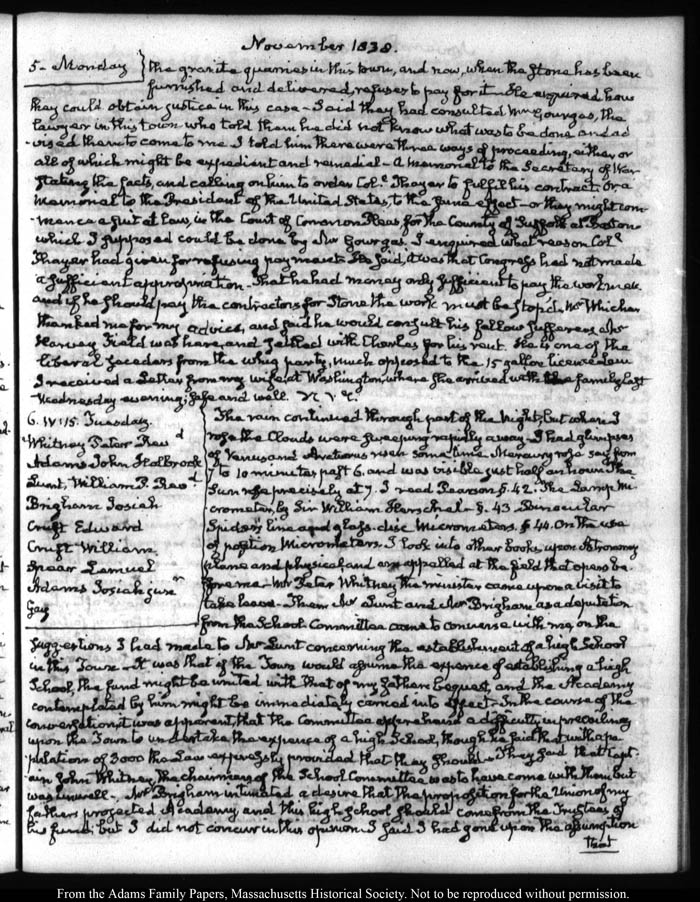 November 1838.
5. Monday } the granite quarries in this town, and now, when the Stone has been
furnished and delivered, refuses to pay for it. He enquired how
they could obtain justice in this case. Said they had consulted Mr Gourgas, the
lawyer in this town who told them he did not know what was to be done, and ad
-vised them to come to me. I told him there were three ways of proceeding, either or
all of which might be expedient and remedial. A memorial to the Secretary of War
stating the facts, and calling on him to order Col.l Thayer to fulfil his contract. Or a
memorial to the President of the United States, to the same effect. or they might com
-mence a suit at Law, in the Court of Common Pleas for the County of Suffolk at Boston
which I supposed could be done by Mr Gourgas. I enquired what reason Col.l
Thayer had given for refusing payment. He said, it was that Congress had not made
a sufficient appropriation. That he had money only sufficient to pay the workmen
and if he should pay the contractors for Stone the work must be stop'd. Mr Whicher
thanked me for my advice, and said he would consult his fellow sufferers. Mr
Harvey Field was here, and settled with Charles for his rent. He is one of the
liberal seceders from the whig party, much opposed to the 15 gallon licence law
I received a Letter from my wife at Washington, where she arrived with the family last
Wednesday evening; safe and well.
6. IV:15. Tuesday.
Whitney Peter Rev.d
Adams John Holbrook
Lunt, William P. Rev.d
Brigham Josiah
Cruft Edward
Cruft William
Lemuel
Adams Josiah jun.r
Gay
The rain continued through part of the Night, but when I
rose the Clouds were sweeping rapidly away. I had glimpses
of Venus and risen some time. Mercury rose say from
7 to 10 minutes past 6. and was visible just half an hour. The
Sun rose precisely at 7. I read Pearson §. 42. The Lamp Mi
crometer, by Sir William Herschel. §. 43. Binocular
Spiders line and glass-disc Micrometers. § 44. On the use
of position Micrometers. I look into other books upon Astronomy
plane and physical, and am appalled at the field that opens be
fore me. Mr Peter Whitney the minister came upon a visit to
take leave. Then Mr Lunt and Mr Brigham as a deputation
from the School Committee came to converse with me, on the
suggestions I had made to Mr Lunt concerning the establishment of a high School
in this Town. It was that if the Town would assume the expence of establishing a high
School, the fund might be united with that of my father's bequest, and the Academy
contemplated by him might be immediately carried into effect. In the course of the
conversation it was apparent, that the Committee apprehend a difficulty in prevailing
upon the Town to undertake the expence of a high School, though he said that with a po
-pulation of 3000 the Law expressly provided that they should. They said that Capt
-ain John Whitney, the chairman of the School Committee, was to have come with them but
was unwell. Mr Brigham intimated a desire that the proposition for the Union of my
fathers projected Academy and this high school should come from the Trustees of
his fund; but I did not concur in this opinion. I said I had gone upon the assumption
that
From the Adams Family Papers, Massachusetts Historical Society. Not to be reproduced without permission.